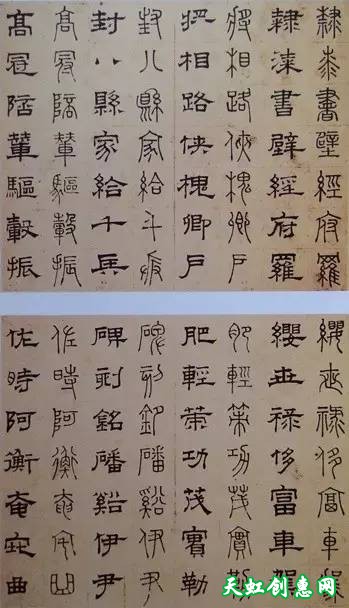 隸漆書壁經府羅
隸漆書壁經府羅
將相路俠槐卿戶
將相路俠槐卿戶
封八縣家給千兵
封八縣家給千兵
高冠陪輦驅轂振
高冠陪輦驅轂振
纓世祿侈富車駕
纓世祿侈富車駕
肥輕策功茂實勒
肥輕策功茂實勒
碑刻銘磻谿伊尹
碑刻銘磻谿伊尹
佐時阿衡奄宅曲
佐時阿衡奄宅曲
天虹创惠网